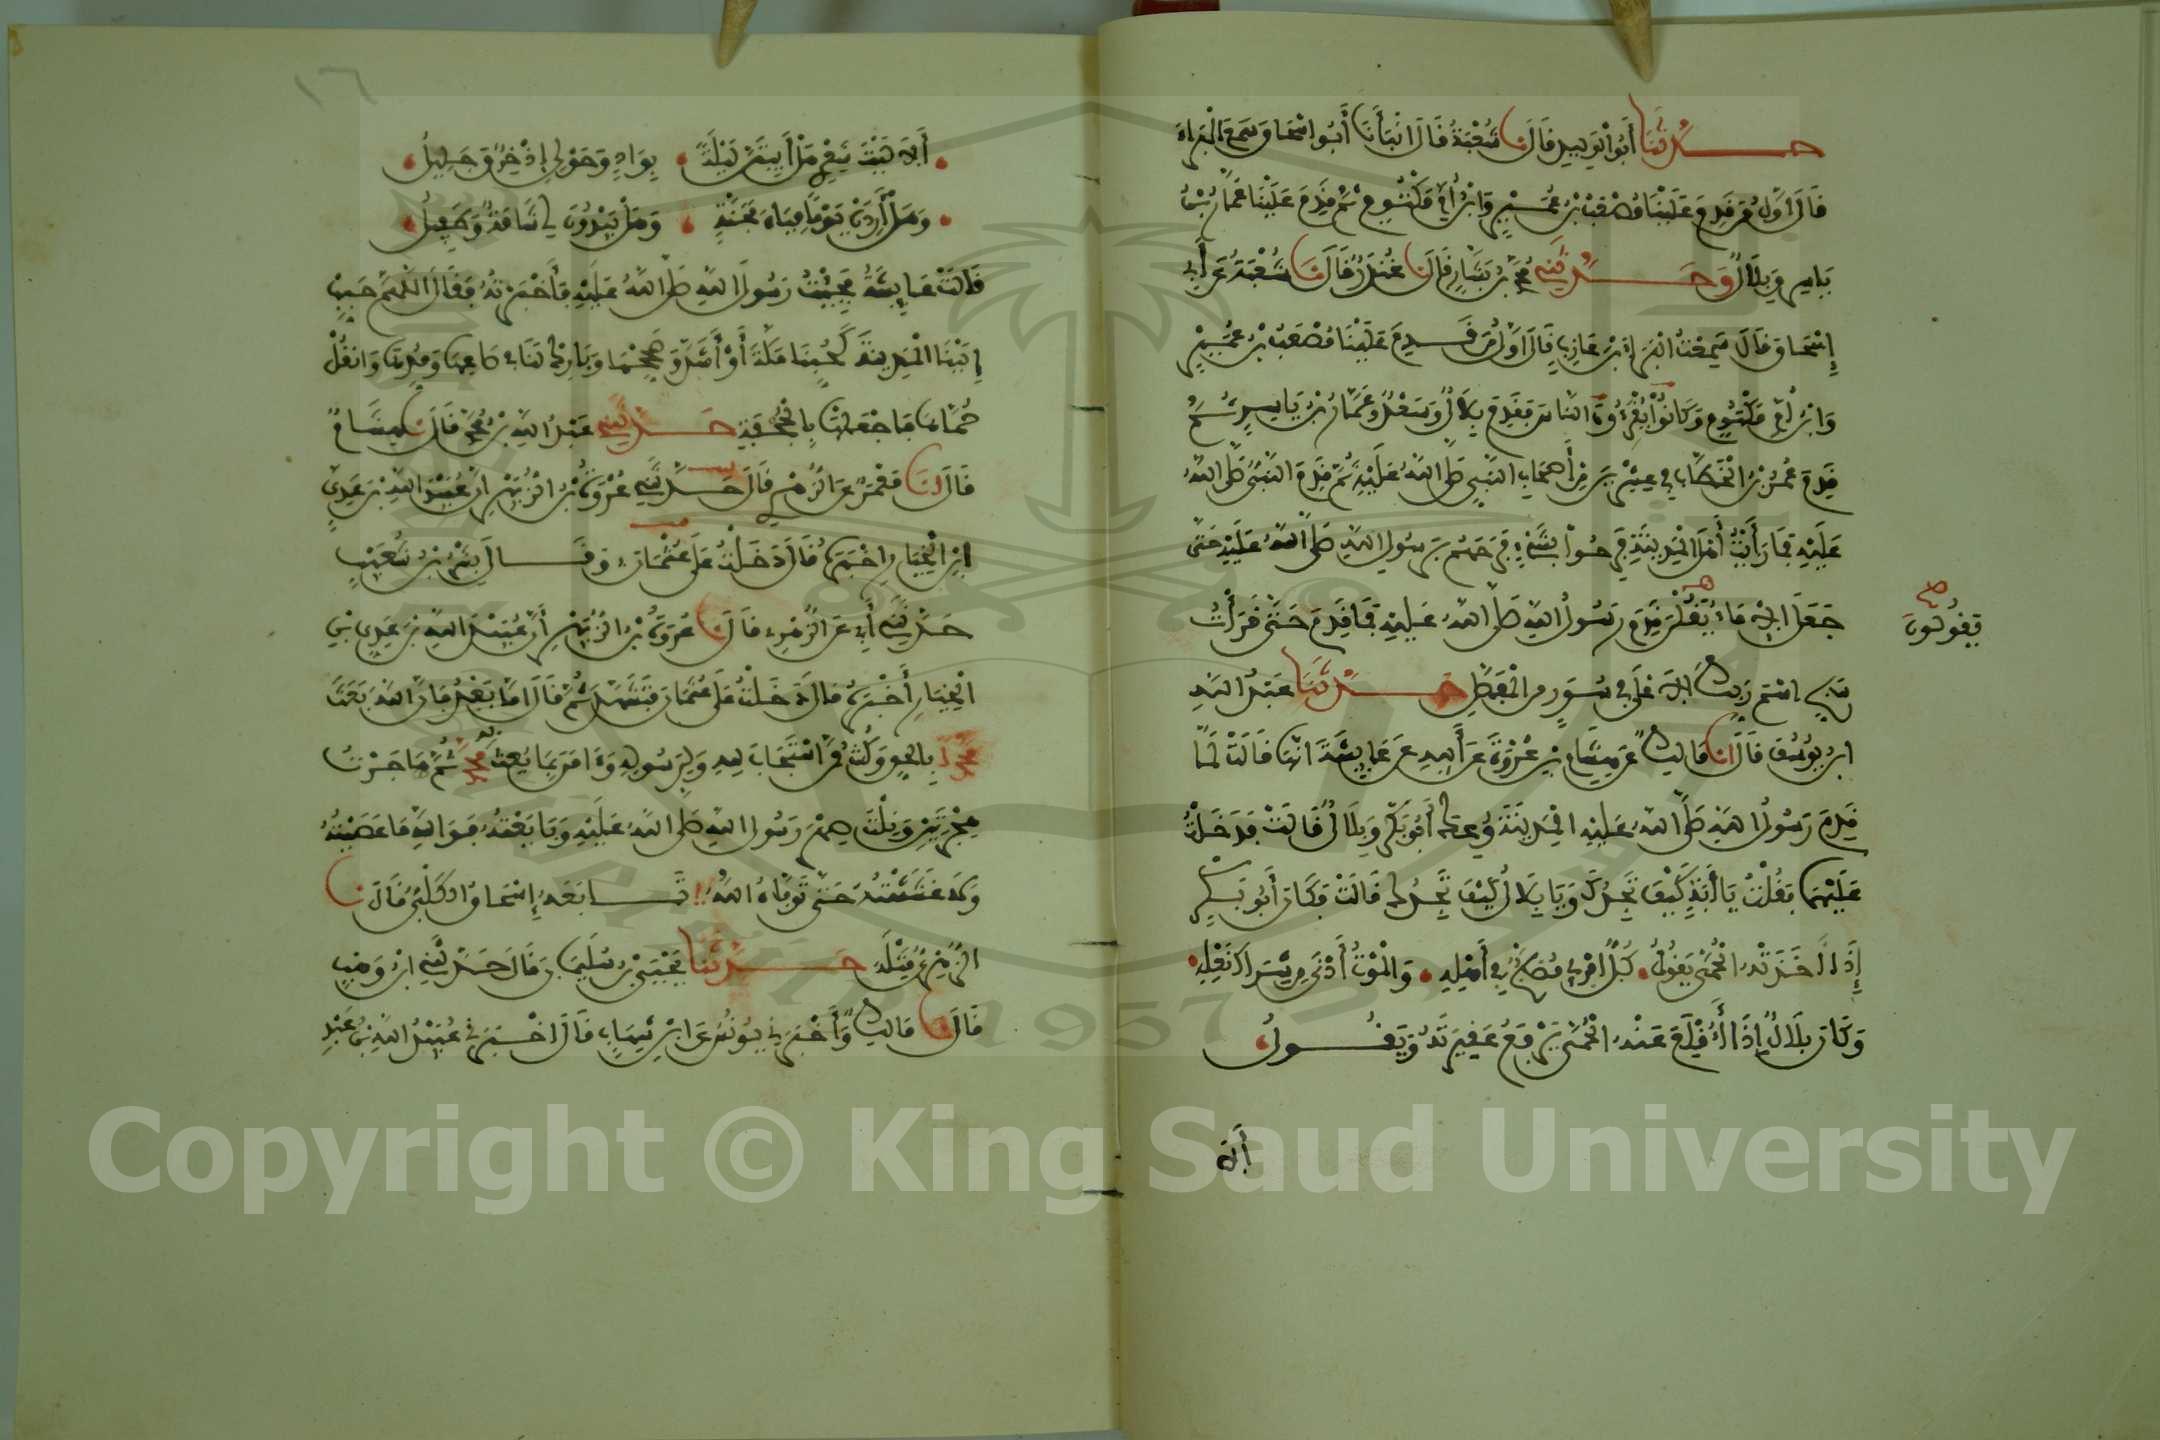 حَدَّثَنَا أَبُو الْوَلِيدِ قَالَ نَا شُعْبَةُ قَالَ انْبَأَنَا أَبُو اِسْحَاقَ سَمِعَ الْبَرَاءَ
قَالَ اَوَّلُ مَن قَدِمَ عَلَيْنَا مُصْعَبُ بْنُ عُمَيْرٍ وَابْنُ أُمِّ مَكْتُومٍ ثُمَّ قَدِمَ عَلَيْنَا عَمَّارُ بْنُ
يَاسِرٍ وَبِلَالٌ وَحَدَّثَنِي مُحَمَّدُ بْنُ بَشَّارٍ قَالَ نَا غُنْدَرٌ قَالَ نَا شُعْبَةُ عَنَ أَبِي
إِسْحَاقَ قَالَ سَمِعْتُ الْبَرَاءَ بْنَ عَازِبٍ قَالَ اَوَّلُ مَن قَدِمَ عَلَيْنَا مُصْعَبُ بْنُ عُمَيْرٍ
وَابْنُ أُمِّ مَكْتُومٍ وَكَانُوا يُقْرِءُونَ النَّاسَ فَقَدِمَ بِلَالٌ وَسَعْدٌ وَعَمَّارُ بْنُ يَاسِرٍ ثُمَّ
قَدِمَ عُمَرُ بْنُ الْخَطَّابِ فِي عِشْرِينَ مِنْ أَصْحَابِ النَّبِيِّ صَلَّى اللهُ عَلَيْهِ ثُمَّ قَدِمَ النَّبِيُّ صَلَّى اللهُ
عَلَيْهِ فَمَا رَأَيْتُ أَهْلَ الْمَدِينَةِ فَرِحُوا بِشَيْءٍ فَرَحَهُم بِرَسُولِ اللهِ صَلَّى اللهُ عَلَيْهِ حَتَّى
جَعَلَ الْإِمَاءُ يَقُلْنَ قَدِمَ رَسُولُ اللهِ صَلَّى اللهُ عَلَيْهِ فَمَا قَدِمَ حَتَّى قَرَأْتُ
يَقُولُونَ
سَبِّحِ اسْمَ رَبِّكَ الاَعْلَى فِي سُوَرٍ مِنَ الْمُفَصَّلِ حَدَّثَنَا عَبْدُ اللهِ
ابْنُ يُوسُفَ قَالَ انَا مَالِكٌ عَن هِشَامِ بْنِ عُرْوَةَ عَنَ أَبِيهِ عَن عَائِشَةَ انَّهَا قَالَتْ لَمَّا
قَدِمَ رَسُولُ اللهِ صَلَّى اللهُ عَلَيْهِ الْمَدِينَةَ وُعِكَ أَبُو بَكْرٍ وَبِلَالٌ قَالَتْ فَدَخَلْتُ
عَلَيْهِمَا فَقُلْتُ يَا أَبَتِ كَيْفَ تَجِدُكَ وَيَا بِلَالُ كَيْفَ تَجِدُكَ قَالَتْ فَكَانَ أَبُو بَكْرٍ
إِذَا أَخَذَتْهُ الْحُمَّى يَقُولُ كُلُّ امْرِئٍ مُصَبَّحٌ فِي أَهْلِهِ وَالْمَوْتُ أَدْنَى مِن شِرَاكِ نَعْلِهِ
وَكَانَ بِلَالٌ إِذَا أُقْلِعَ عَنْهُ الْحُمَّى يَرْفَعُ عَقِيرَتَهُ وَيَقُولُ
أَلَا
١٦
أَلَا لَيْتَ شِعْرِي هَلْ أَبِيتَنَّ لَيْلَةً بِوَادٍ وَحَوْلِي إِذْخِرٌ وَجَلِيلُ
وَهَلْ أَرِدَنْ يَوْمًا مِيَاهَ مَجَنَّةٍ وَهَلْ يَبْدُوَن لِي شَامَةٌ وَطَفِيلُ
قَالَتْ عَائِشَةُ فَجِئْتُ رَسُولَ اللهِ صَلَّى اللهُ عَلَيْهِ فَأَخْبَرْتُهُ فَقَالَ اللَّهُمَّ حَبِّبِ
إِلَيْنَا الْمَدِينَةَ كَحُبِّنَا مَكَّةَ أَوْ أَشَدَّ وَصَحِّحْهَا وَبَارِكْ لَنَا فِي صَاعِهَا وَمُدِّهَا وَانْقُلْ
حُمَّاهَا فَاجْعَلْهَا بِالْجُحْفَةِ حَدَّثَنِي عَبْدُ اللهِ بْنُ مُحَمَّدٍ قَالَ نَا هِشَامٌ
قَالَ انَا مَعْمَرٌ عَنِ الزُّهْرِيِّ قَالَ حَدَّثَنِي عُرْوَةُ بْنُ الزُّبَيْرِ أَنَّ عُبَيْدَ اللهِ بْنَ عَدِيِّ
ابْنِ الْخِيَارِ اخْبَرَهُ قَالَ دَخَلْتُ عَلَى عُثْمَانَ وَقَالَ بِشْرُ بْنُ شُعَيْبٍ
حَدَّثَنِي أَبِي عَنِ الزُّهْرِيِّ قَالَ نَا عُرْوَةُ بْنُ الزُّبَيْرِ أَنَّ عُبَيْدَ اللهِ بْنَ عَدِيِّ بْنِ
الْخِيَارِ أَخْبَرَهُ قَالَ دَخَلْتُ عَلَى عُثْمَانَ فَتَشَهَّدَ ثُمَّ قَالَ امَّا بَعْدُ فَإِنَّ اللهَ بَعَثَ
مُحَمَّدًا بِالْحَقِّ وَكُنْتُ مِمَّنِ اسْتَجَابَ لِلهِ وَلِرَسُولِهِ وَءَامَنَ بِمَا بُعِثَ بِهِ مُحَمَّدٌ ثُمَّ هَاجَرْتُ
هِجْرَتَيْنِ وَنِلْتُ صِهْرَ رَسُولِ اللهِ صَلَّى اللهُ عَلَيْهِ وَبَايَعْتُهُ فَوَاللهِ مَا عَصَيْتُهُ
وَلَا غَشَشْتُهُ حَتَّى تَوَفَّاهُ اللهُ تَابَعَهُ إِسْحَاقُ الْكَلْبِيُّ قَالَ نَا
الزُّهْرِيُّ مِثْلَهُ حَدَّثَنَا يَحْيَى بْنُ سُلَيْمَانَ قَالَ حَدَّثَنِي ابْنُ وَهْبٍ
قَالَ نَا مَالِكٌ وَأَخْبَرَنِي يُونُسُ عَنِ ابْنِ شِهَابٍ قَالَ اخْبَرَنِي عُبَيْدُ اللهِ بْنُ عَبْدِ
Copyright © King Saud University
1957